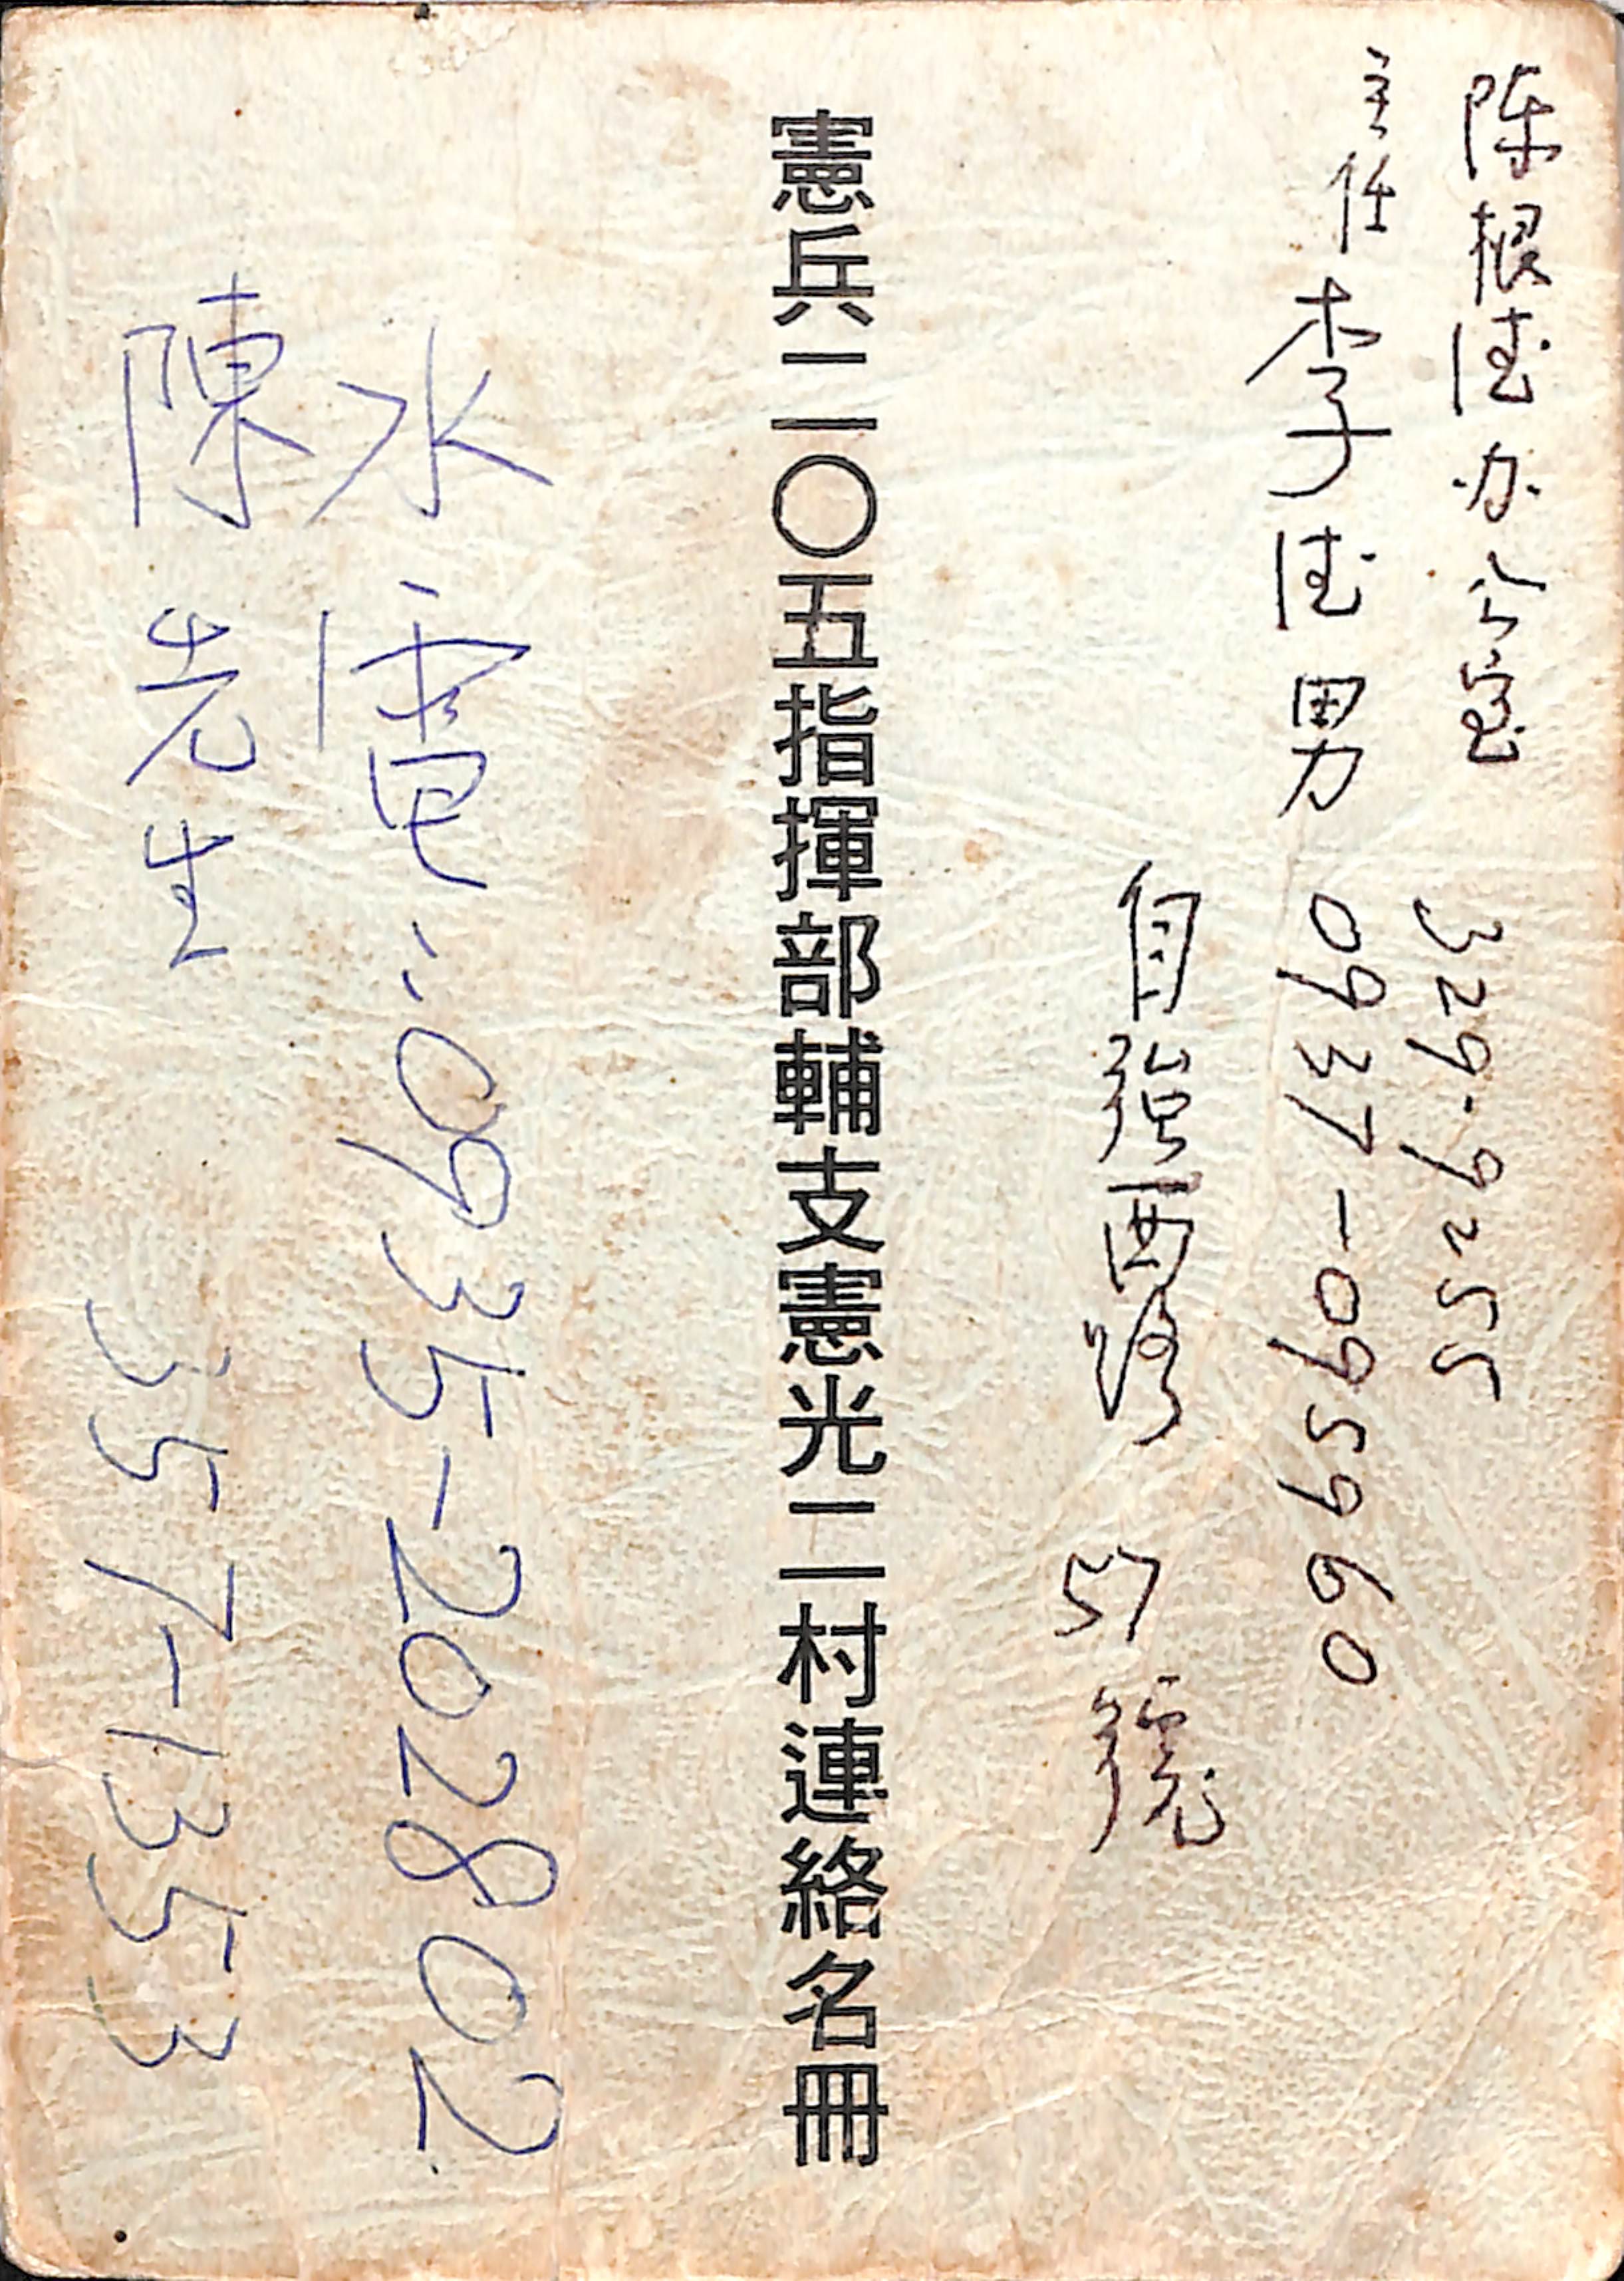 陈根德办公室 329-9255
主任 李德男 0937-095960
自強西路 57號
憲兵二〇五指揮部輔支憲光二村連絡名冊
水電:0935-202802
陳先生 357-1353